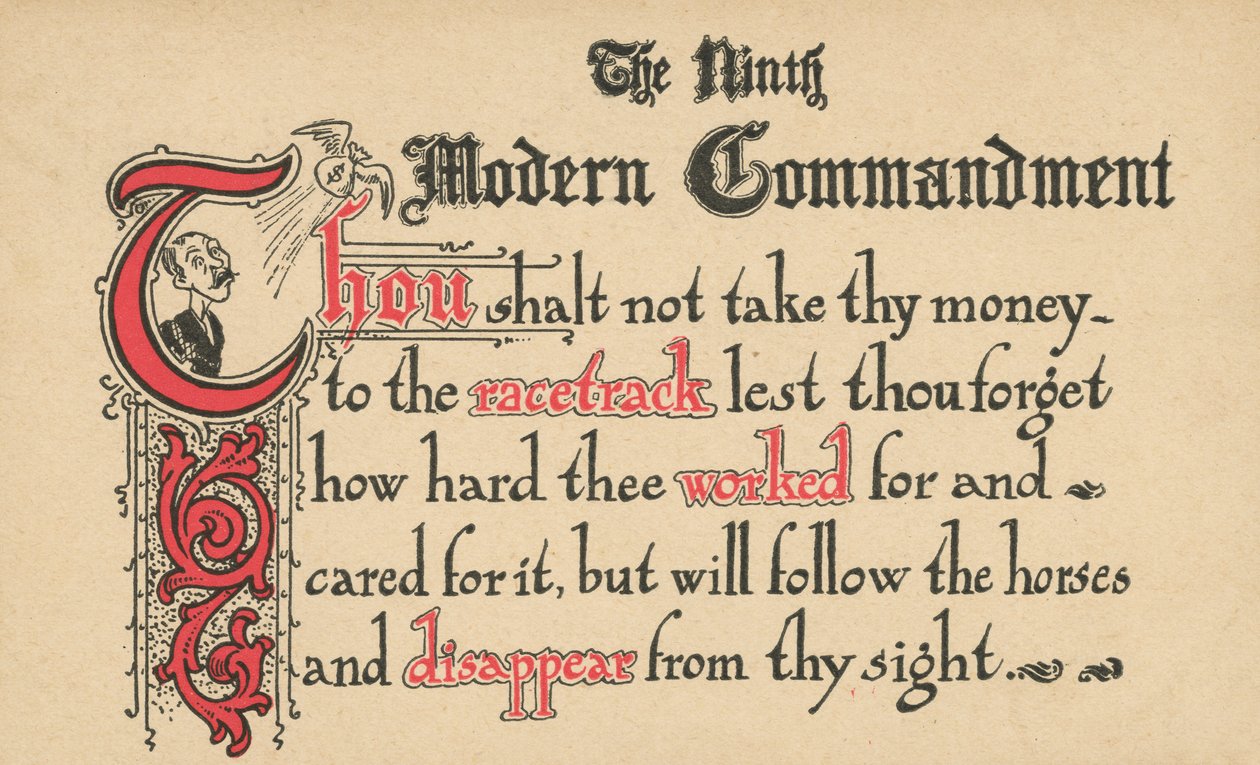 The Ninth
Modern Commandment
$
Thou shalt not take thy money
to the racetrack lest thou forget
how hard thee worked for and
cared for it, but will follow the horses
and disappear from thy sight..